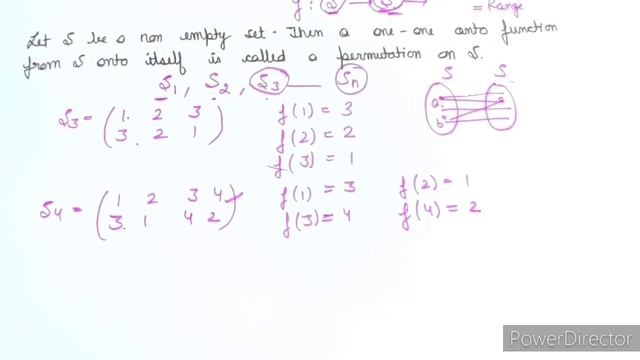 f : S S = Range
Let S be a non empty set. Then a one-one onto function
from S onto itself is called a permutation on S.
S1, S2, S3 — Sn
S S
a
b
S3 = ( 1 2 3
3 2 1 )
f(1) = 3
f(2) = 2
f(3) = 1
S4 = ( 1 2 3 4
3 1 4 2 )
f(1) = 3 f(2) = 1
f(3) = 4 f(4) = 2
PowerDirector